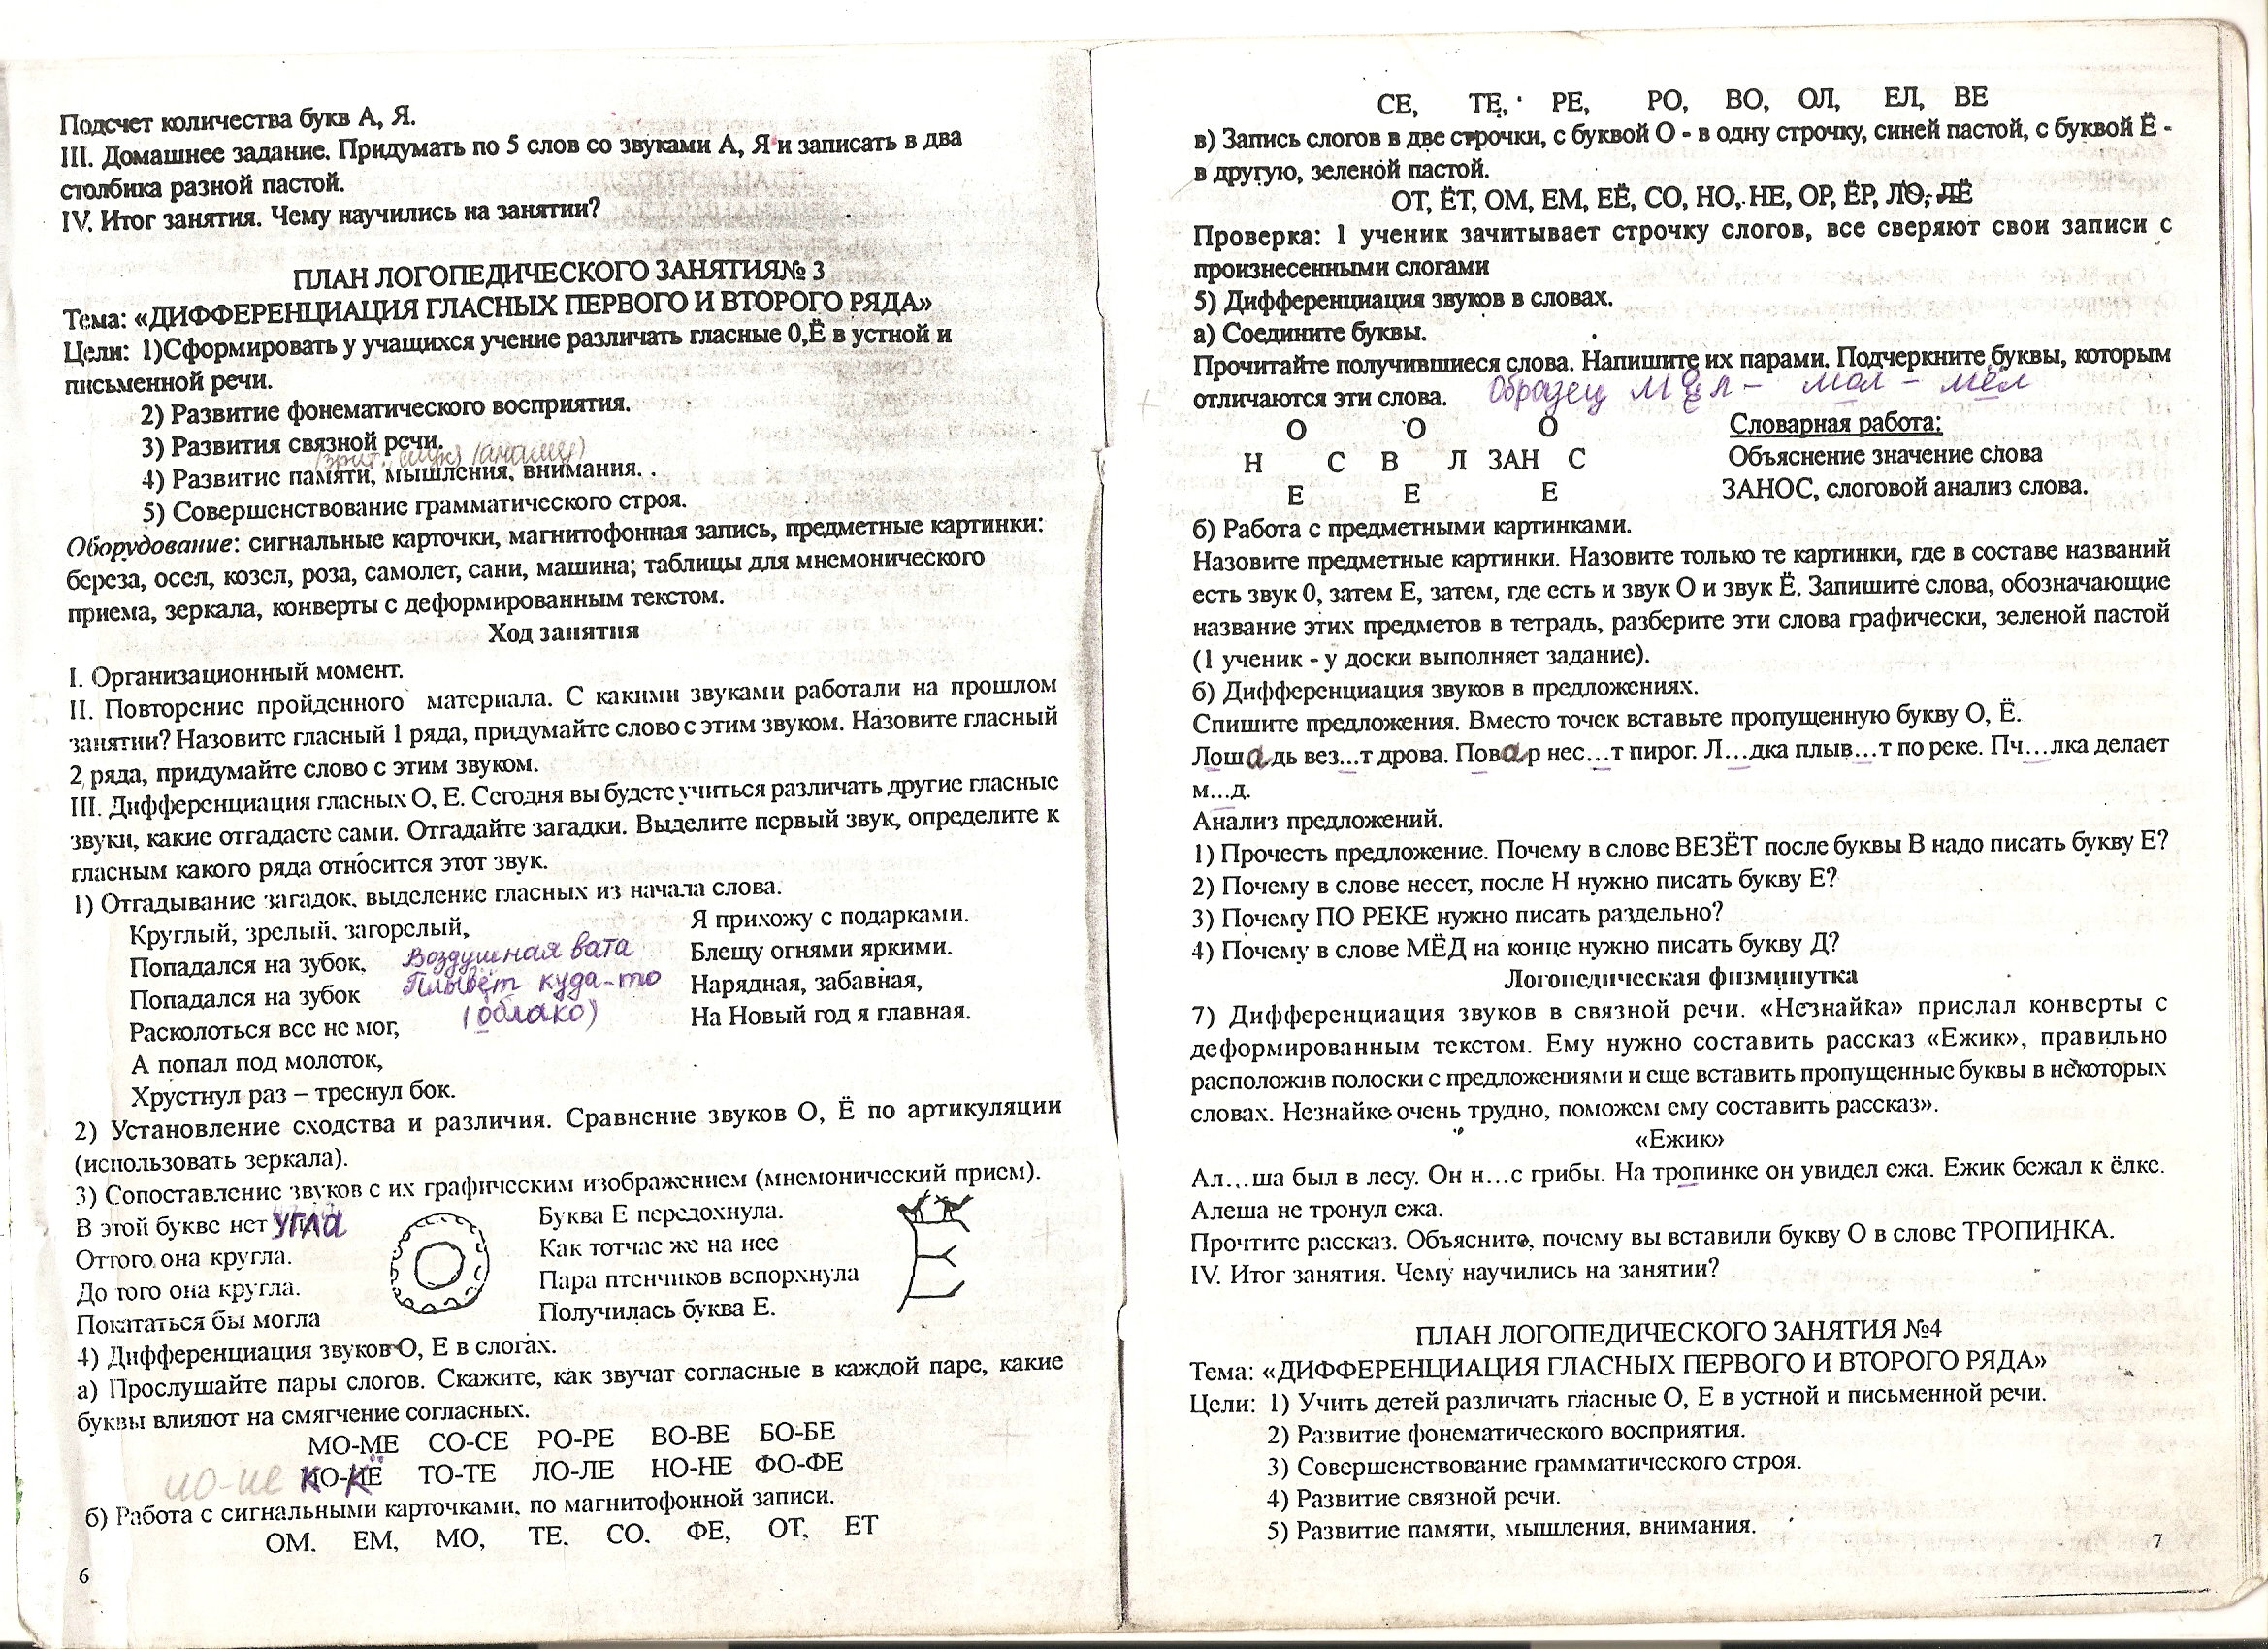 Подсчет количества букв А, Я.
III. Домашнее задание. Придумать по 5 слов со звуками А, Я и записать в два
столбика разной пастой.
IV. Итог занятия. Чему научились на занятии?
ПЛАН ЛОГОПЕДИЧЕСКОГО ЗАНЯТИЯ№ 3
Тема: «ДИФФЕРЕНЦИАЦИЯ ГЛАСНЫХ ПЕРВОГО И ВТОРОГО РЯДА»
Цели: 1)Сформировать у учащихся учение различать гласные 0,Ё в устной и
письменной речи.
2) Развитие фонематического восприятия.
3) Развития связной речи.
4) Развитие памяти, мышления, внимания. .
5) Совершенствование грамматического строя.
Оборудование: сигнальные карточки, магнитофонная запись, предметные картинки:
береза, осел, козел, роза, самолет, сани, машина; таблицы для мнемонического
приема, зеркала, конверты с деформированным текстом.
Ход занятия
I. Организационный момент.
II. Повторение пройденного материала. С какими звуками работали на прошлом
занятии? Назовите гласный 1 ряда, придумайте слово с этим звуком. Назовите гласный
2 ряда, придумайте слово с этим звуком.
III. Дифференциация гласных О, Е. Сегодня вы будете учиться различать другие гласные
звуки, какие отгадаете сами. Отгадайте загадки. Выделите первый звук, определите к
гласным какого ряда относится этот звук.
1) Отгадывание загадок, выделение гласных из начала слова.
Круглый, зрелый, загорелый,
Попадался на зубок,
Попадался на зубок
Расколоться все не мог,
А попал под молоток,
Хрустнул раз – треснул бок.
Воздушная вата
Плывёт куда-то
(облако)
Я прихожу с подарками.
Блещу огнями яркими.
Нарядная, забавная,
На Новый год я главная.
2) Установление сходства и различия. Сравнение звуков О, Ё по артикуляции
(использовать зеркала).
3) Сопоставление звуков с их графическим изображением (мнемонический прием).
В этой букве нет угла
Оттого она кругла.
До того она кругла.
Покататься бы могла
Буква Е передохнула.
Как тотчас же на нее
Пара птенчиков вспорхнула
Получилась буква Е.
4) Дифференциация звуков О, Е в слогах.
а) Прослушайте пары слогов. Скажите, как звучат согласные в каждой паре, какие
буквы влияют на смягчение согласных.
МО-МЕ СО-СЕ РО-РЕ ВО-ВЕ БО-БЕ
КО-КЁ ТО-ТЕ ЛО-ЛЕ НО-НЕ ФО-ФЕ
б) Работа с сигнальными карточками, по магнитофонной записи.
ОМ. ЕМ, МО, ТЕ. СО. ФЕ, ОТ, ЕТ
6
СЕ, ТЕ, РЕ, РО, ВО, ОЛ, ЕЛ, ВЕ
в) Запись слогов в две строчки, с буквой О - в одну строчку, синей пастой, с буквой Ё -
в другую, зеленой пастой.
ОТ, ЁТ, ОМ, ЕМ, ЕЁ, СО, НО, НЕ, ОР, ЁР, ЛО, ЛЁ
Проверка: 1 ученик зачитывает строчку слогов, все сверяют свои записи с
произнесенными слогами
5) Дифференциация звуков в словах.
а) Соедините буквы.
Прочитайте получившиеся слова. Напишите их парами. Подчеркните буквы, которым
отличаются эти слова. Образец мол - мёл
О О О
Н С В Л ЗАН С
Е Е Е
Словарная работа:
Объяснение значение слова
ЗАНОС, слоговой анализ слова.
б) Работа с предметными картинками.
Назовите предметные картинки. Назовите только те картинки, где в составе названий
есть звук 0, затем Е, затем, где есть и звук О и звук Ё. Запишите слова, обозначающие
название этих предметов в тетрадь, разберите эти слова графически, зеленой пастой
(1 ученик - у доски выполняет задание).
б) Дифференциация звуков в предложениях.
Спишите предложения. Вместо точек вставьте пропущенную букву О, Ё.
Лошадь вез...т дрова. Повар нес...т пирог. Л...дка плыв...т по реке. Пч...лка делает
м...д.
Анализ предложений.
1) Прочесть предложение. Почему в слове ВЕЗЁТ после буквы В надо писать букву Е?
2) Почему в слове несет, после Н нужно писать букву Е?
3) Почему ПО РЕКЕ нужно писать раздельно?
4) Почему в слове МЁД на конце нужно писать букву Д?
Логопедическая физминутка
7) Дифференциация звуков в связной речи. «Незнайка» прислал конверты с
деформированным текстом. Ему нужно составить рассказ «Ежик», правильно
расположив полоски с предложениями и еще вставить пропущенные буквы в некоторых
словах. Незнайке очень трудно, поможем ему составить рассказ».
«Ежик»
Ал...ша был в лесу. Он н...с грибы. На тропинке он увидел ежа. Ежик бежал к ёлке.
Алеша не тронул ежа.
Прочтите рассказ. Объясните, почему вы вставили букву О в слове ТРОПИНКА.
IV. Итог занятия. Чему научились на занятии?
ПЛАН ЛОГОПЕДИЧЕСКОГО ЗАНЯТИЯ №4
Тема: «ДИФФЕРЕНЦИАЦИЯ ГЛАСНЫХ ПЕРВОГО И ВТОРОГО РЯДА»
Цели: 1) Учить детей различать гласные О, Е в устной и письменной речи.
2) Развитие фонематического восприятия.
3) Совершенствование грамматического строя.
4) Развитие связной речи.
5) Развитие памяти, мышления, внимания.
7